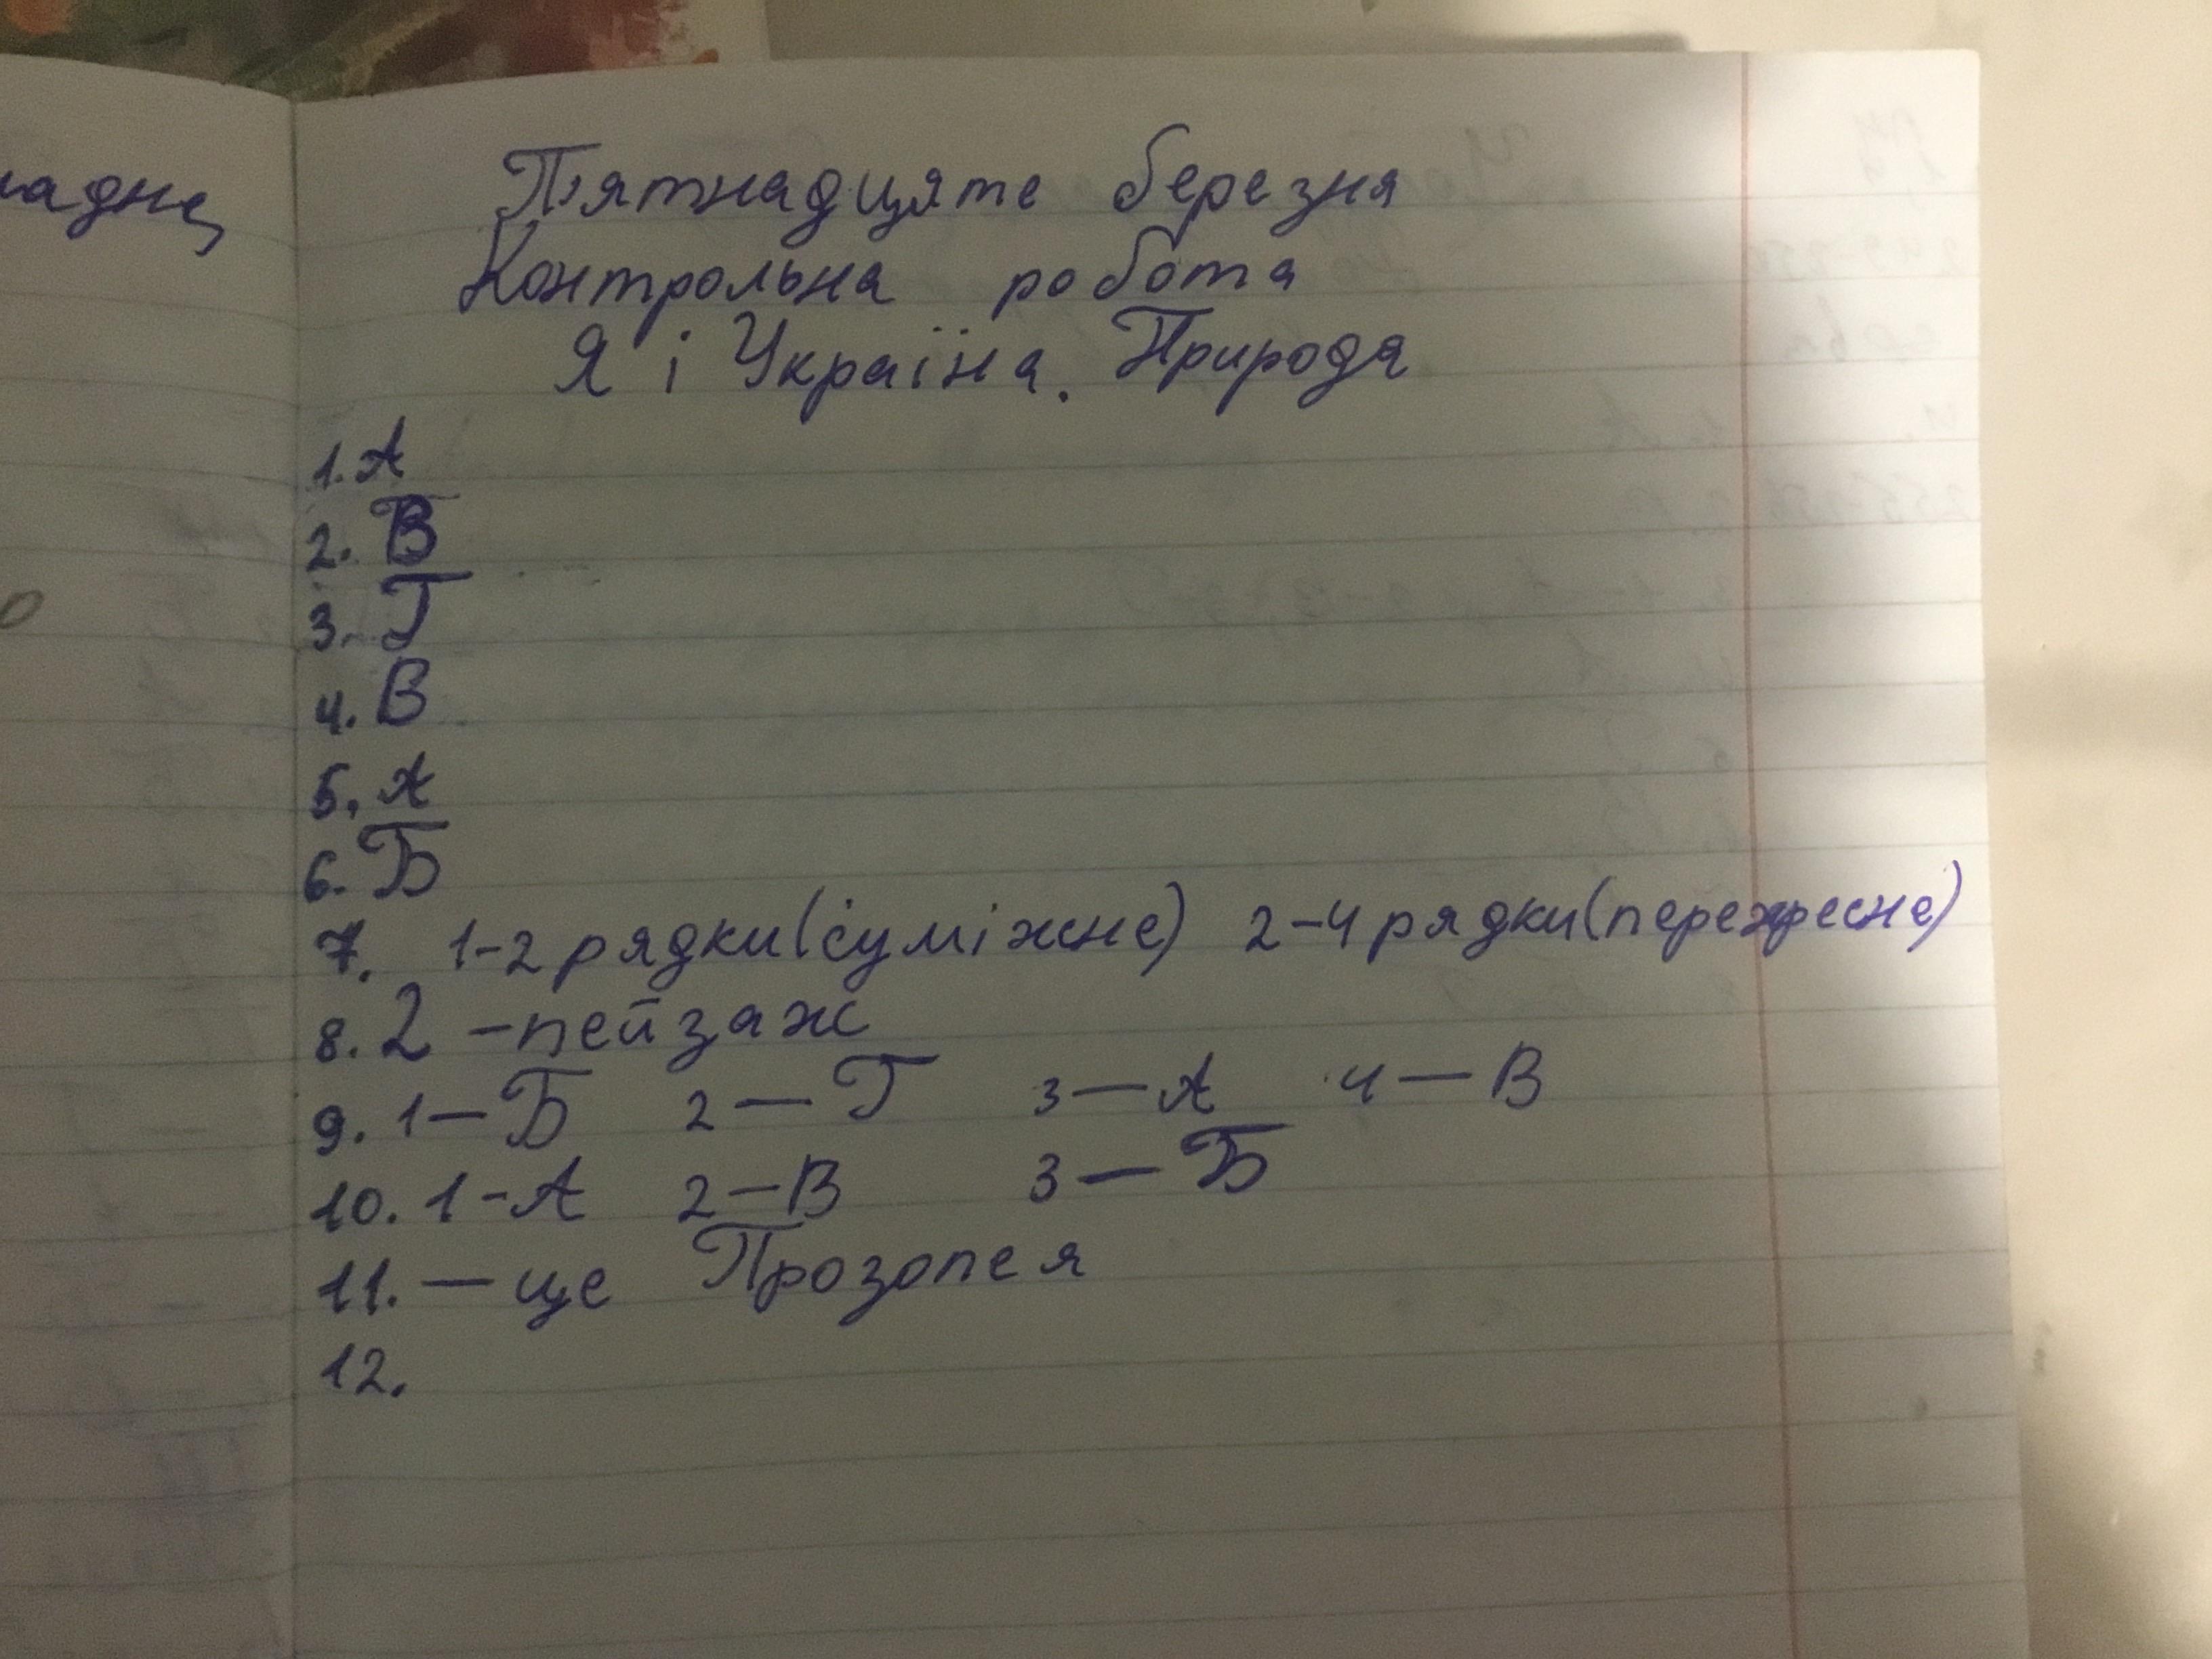 П'ятнадцяте березня
Контрольна робота
Я і Україна. Природа
1. А
2. В
3. Г
4. В
5. А
6. Б
7. 1-2 рядки (суміжне) 2-4 рядки (перехресне)
8. 2 - пейзаж
9. 1 — Б 2 — Г 3 — А 4 — В
10. 1 - А 2 — В 3 — Б
11. — це Прозопея
12.